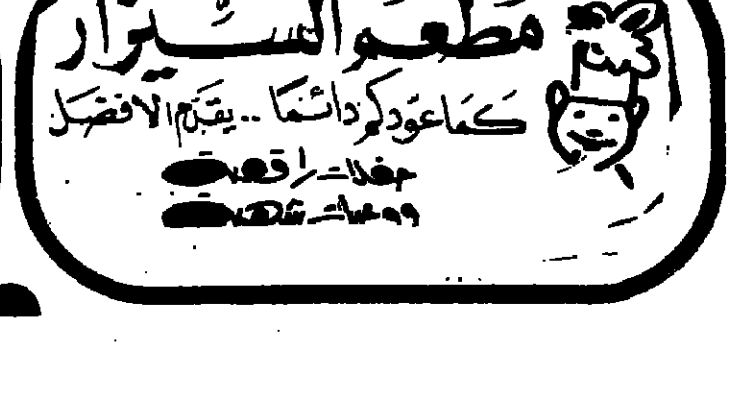 مطعم السيزار
كما عودكم دائما .. يقدم الافضل
حفلات راقصة
ووجبات شهية